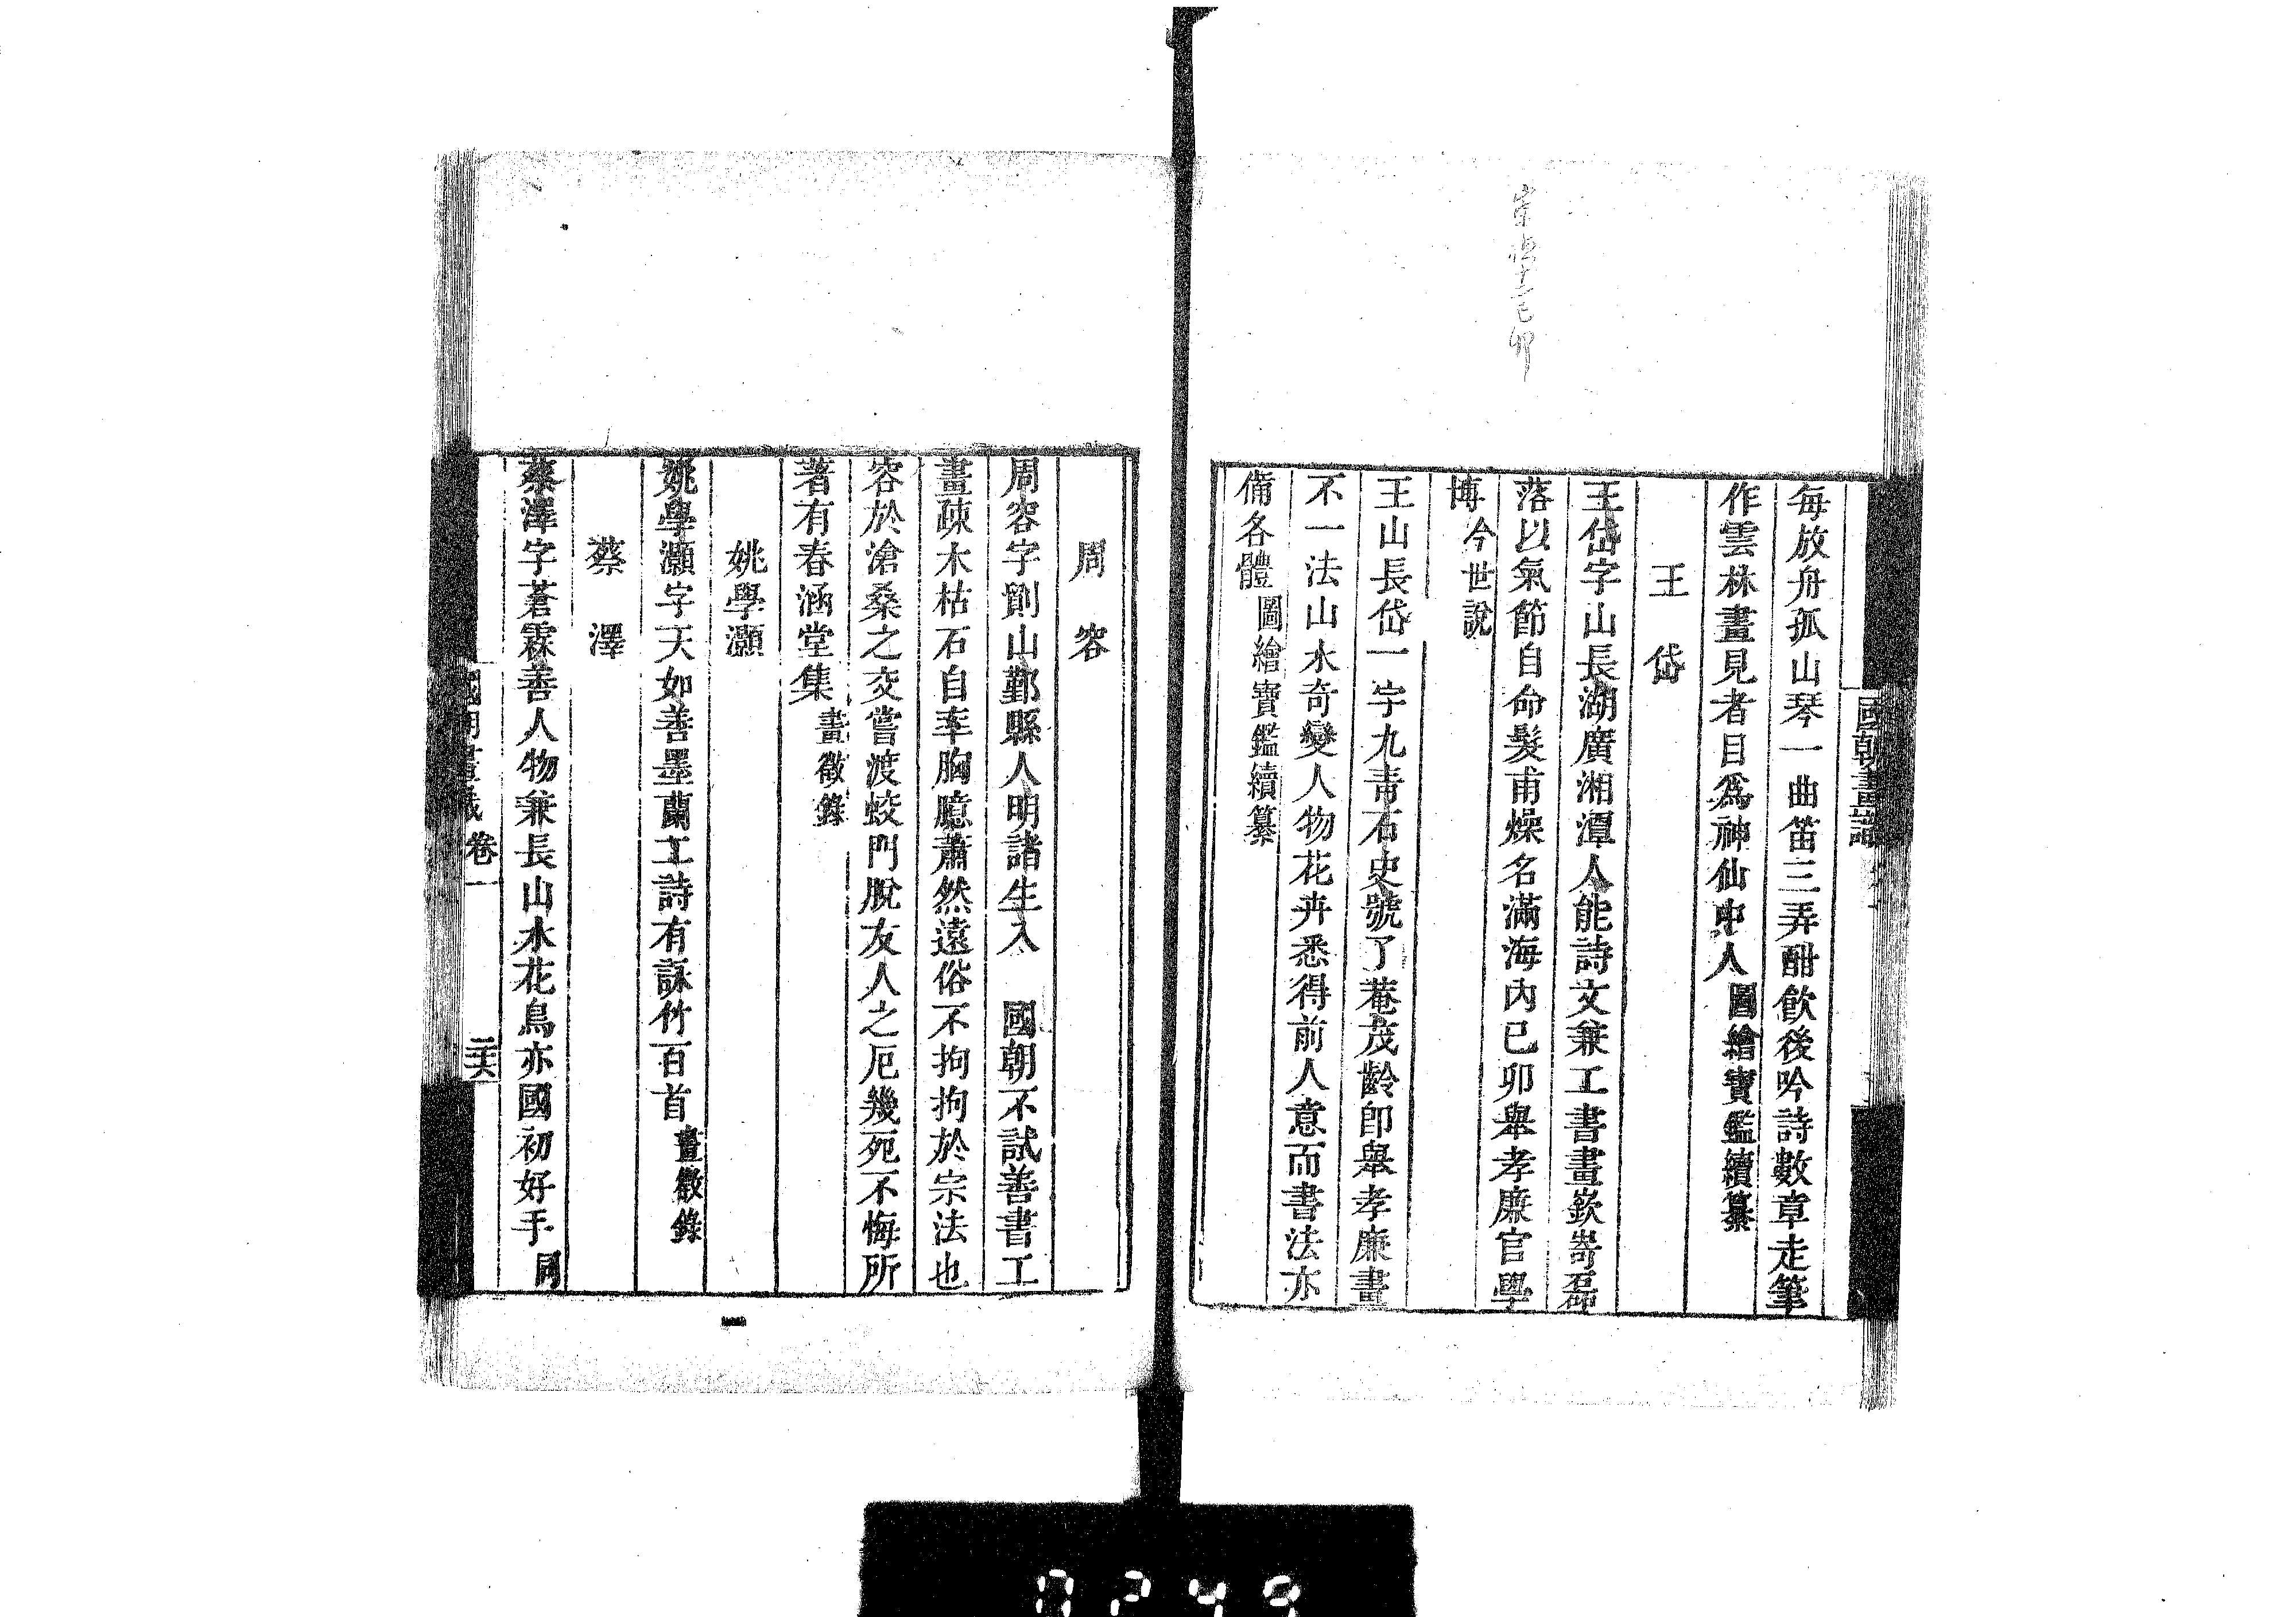 國朝畫識
每放舟孤山琴一曲笛三弄酣飲後吟詩數章走筆
作雲林畫見者目爲神仙中人圖繪寶鑑續纂
王岱
王岱字山長湖廣湘潭人能詩文兼工書畫嶔嵜磊
落以氣節自命髮甫燥名滿海內已卯舉孝廉官學
博今世說
王山長岱一字九青石史號了菴茂齡卽舉孝廉畫
不一法山水奇變人物花卉悉得前人意而書法亦
備各體圖繪寶鑑續纂
周容
周容字鄮山鄞縣人明諸生入 國朝不試善書工
畫疎木枯石自率胸臆蕭然遠俗不拘拘於宗法也
容於滄桑之交嘗渡蛟門脫友人之厄幾死不悔所
著有春涵堂集畫徵錄
姚學灝
姚學灝字天如善墨蘭工詩有詠竹百首畫徵錄
蔡澤
蔡澤字蒼霖善人物兼長山水花鳥亦國初好手同
國朝畫識 卷一 二六
崇十二己卯
0249